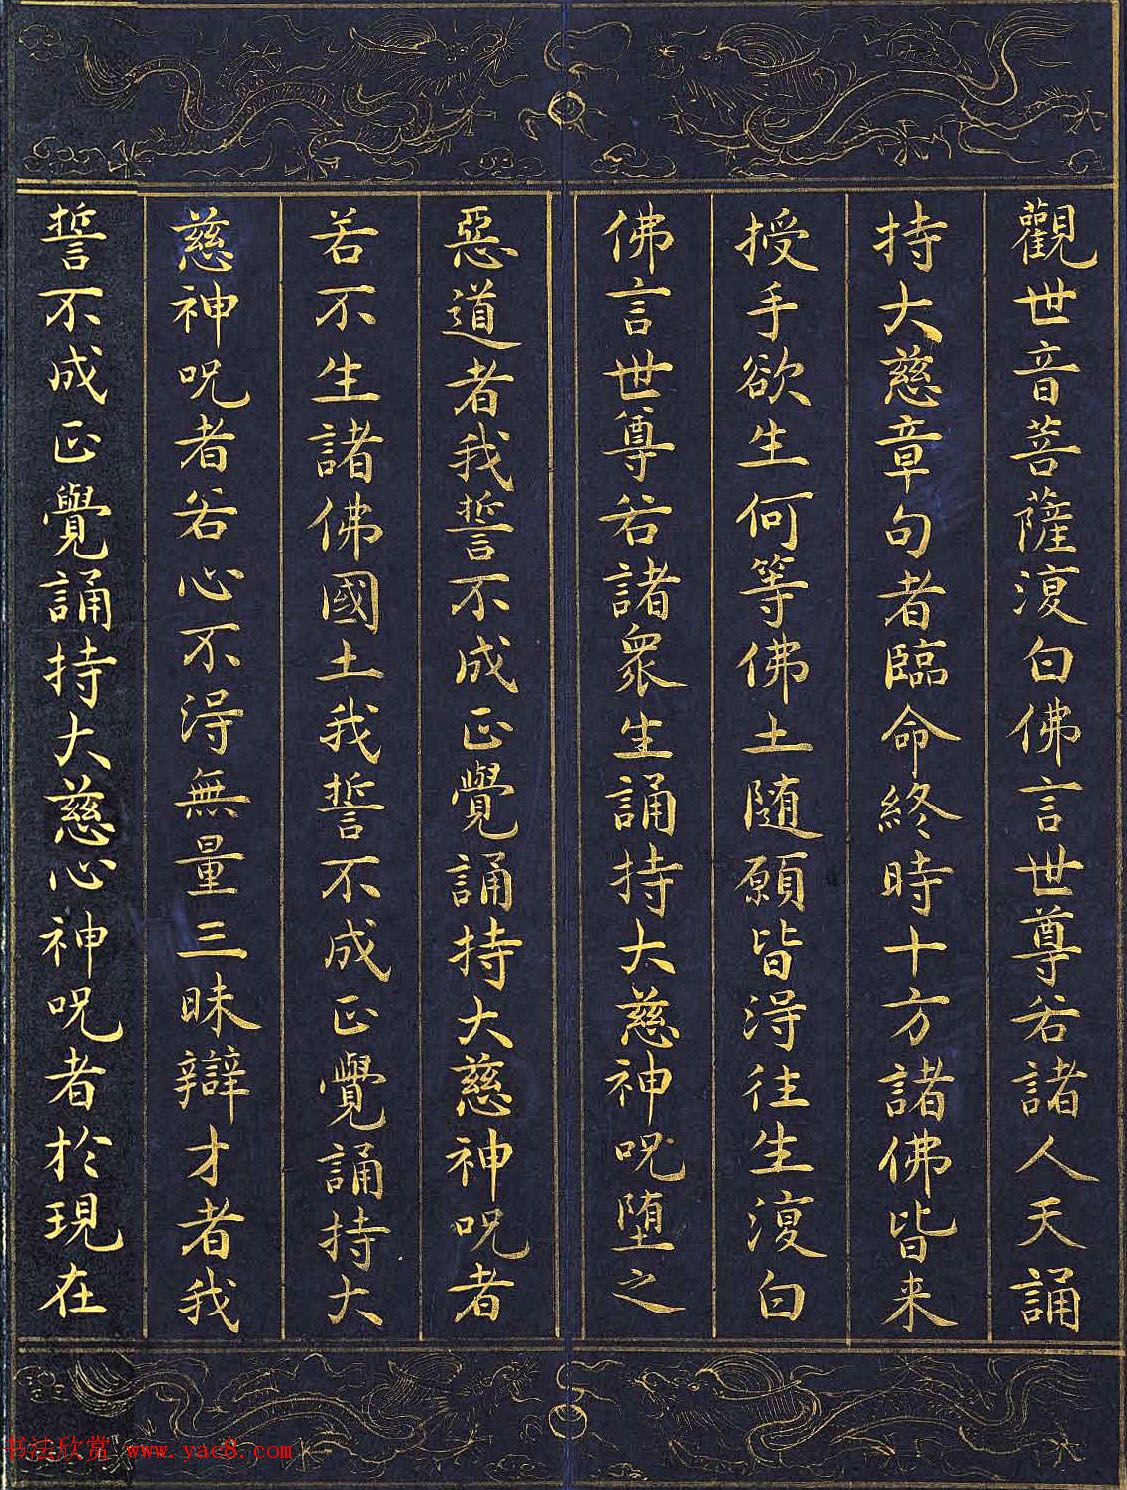 觀世音菩薩復白佛言世尊若諸人天誦
持大慈章句者臨命終時十方諸佛皆来
授手欲生何等佛土随願皆得往生復白
佛言世尊若諸衆生誦持大慈神呪墮之
惡道者我誓不成正覺誦持大慈神呪者
若不生諸佛國土我誓不成正覺誦持大
慈神呪者若心不得無量三昧辯才者我
誓不成正覺誦持大慈心神呪者於現在
书法欣赏 www.yac8.com